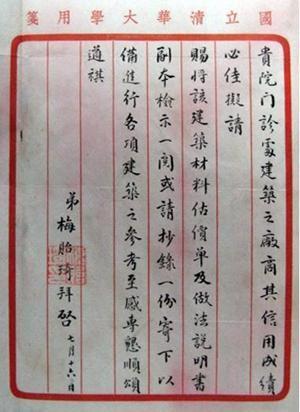 國立清華大學用箋
貴院門診處建築之廠商其信用成績
必佳擬請
賜將該建築材料估價單及做法說明書
副本檢示一閱或請抄錄一份寄下以
備進行各項建築之參考至感專懇順頌
道祺
弟梅貽琦拜啓
七月十六日